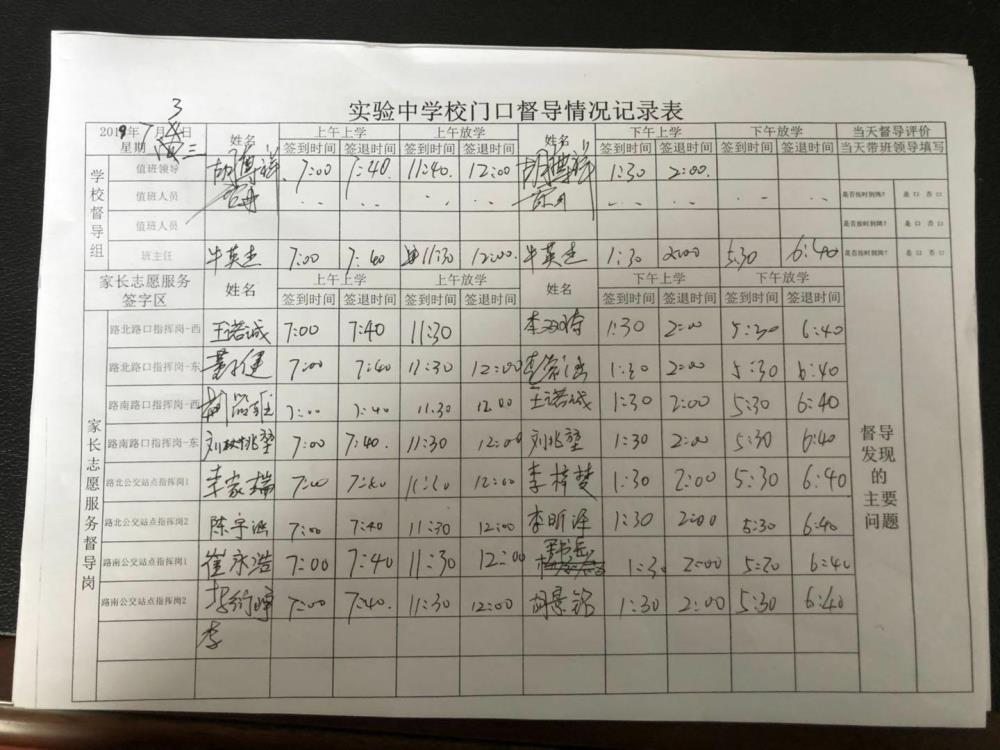 实验中学校门口督导情况记录表
2019年7月3日 姓名 上午上学 上午放学 姓名 下午上学 下午放学 当天督导评价
星期三 签到时间 签退时间 签到时间 签退时间 签到时间 签退时间 签到时间 签退时间 当天带班领导填写
学校督导组
值班领导 7:00 7:40. 11:40. 12:00 1:30 2:00.
值班人员 是否按时到岗? 是 口 否 口
值班人员 是否按时到岗? 是 口 否 口
班主任 牛英杰 7:00 7:40 11:30 12:00. 牛英杰 1:30 2:00 5:30 6:40 是否按时到岗? 是 口 否 口
家长志愿服务 姓名 上午上学 上午放学 姓名 下午上学 下午放学
签字区 签到时间 签退时间 签到时间 签退时间 签到时间 签退时间 签到时间 签退时间
家长志愿服务督导岗
路北路口指挥岗-西 王诺诚 7:00 7:40 11:30 1:30 2:00 5:30 6:40
路北路口指挥岗-东 7:00 7:40 11:30 12:00 1:30 2:00 5:30 6:40
路南路口指挥岗-西 7:00 7:40 11.30 12:00 王诺诚 1:30 2:00 5:30 6:40
路南路口指挥岗-东 7:00 7:40. 11:30 12:00 刘兆堃 1:30 2:00 5:30 6:40
路北公交站点指挥岗1 李家瑞 7:00 7:40 12:00 李梓梦 1:30 2:00 7:30 6:40
路北公交站点指挥岗2 陈宇涵 7:00 7:40 11:30 12:00 李昕泽 1:30 2:00 5:30 6:40
路南公交站点指挥岗1 崔永浩 7:00 7:40 11:30 12:00 1:30 2:00 6:40
路南公交站点指挥岗2 7:00 7:40. 11:30 12:00 胡景铭 1:30 2:00 5:30 6:40
李
督导
发现
的
主要
问题